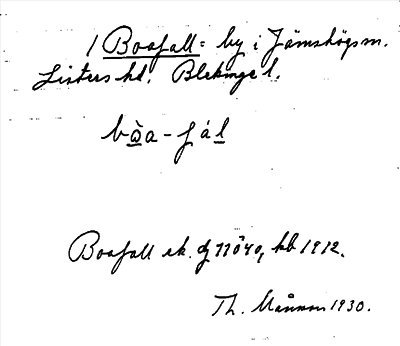 1 Boafall = by i Jämshögs m.
Listers hd. Blekinge l.
bòa - fál
Boafall ek. dj 11ö40, kb 1912.
Th. Månsson 1930.